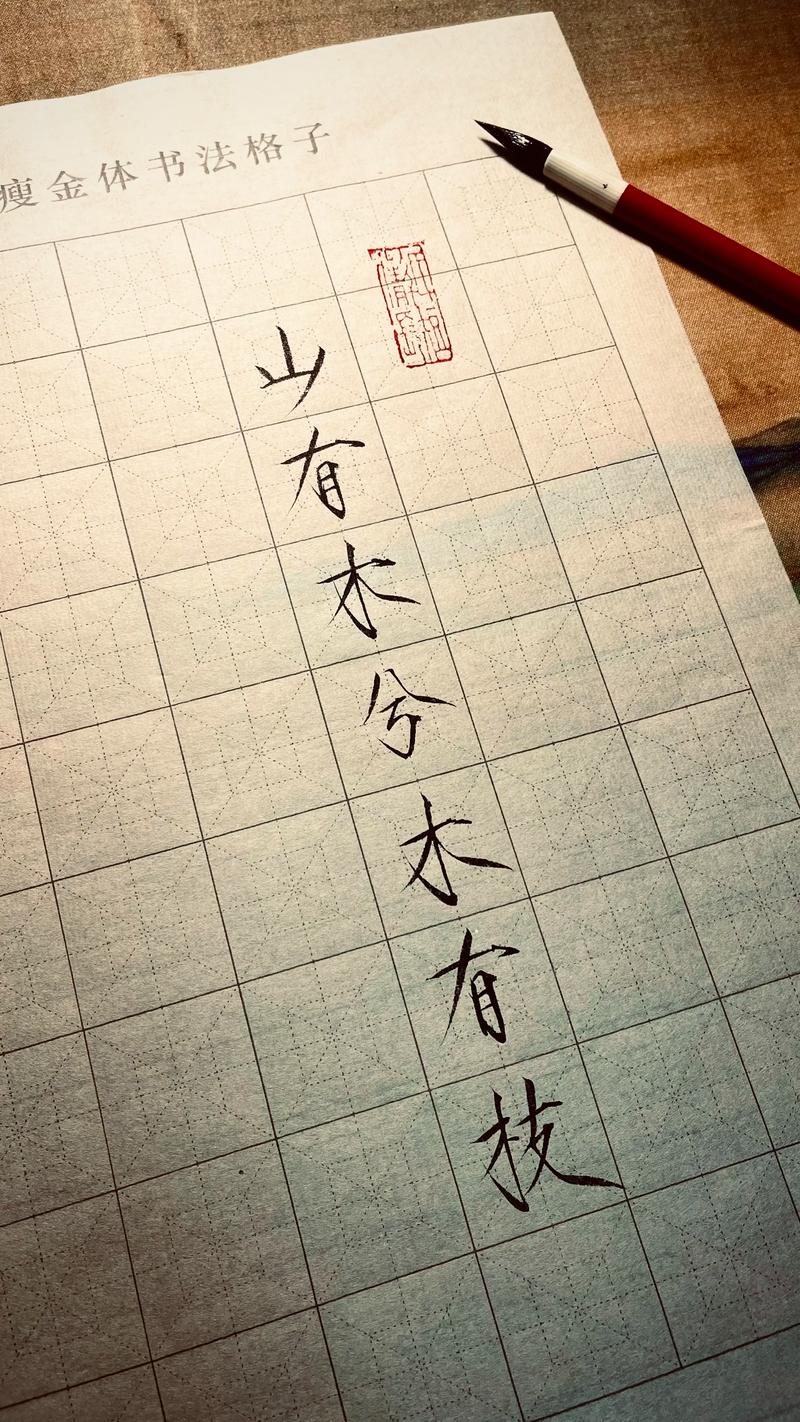 瘦金体书法格子
山有木兮木有枝